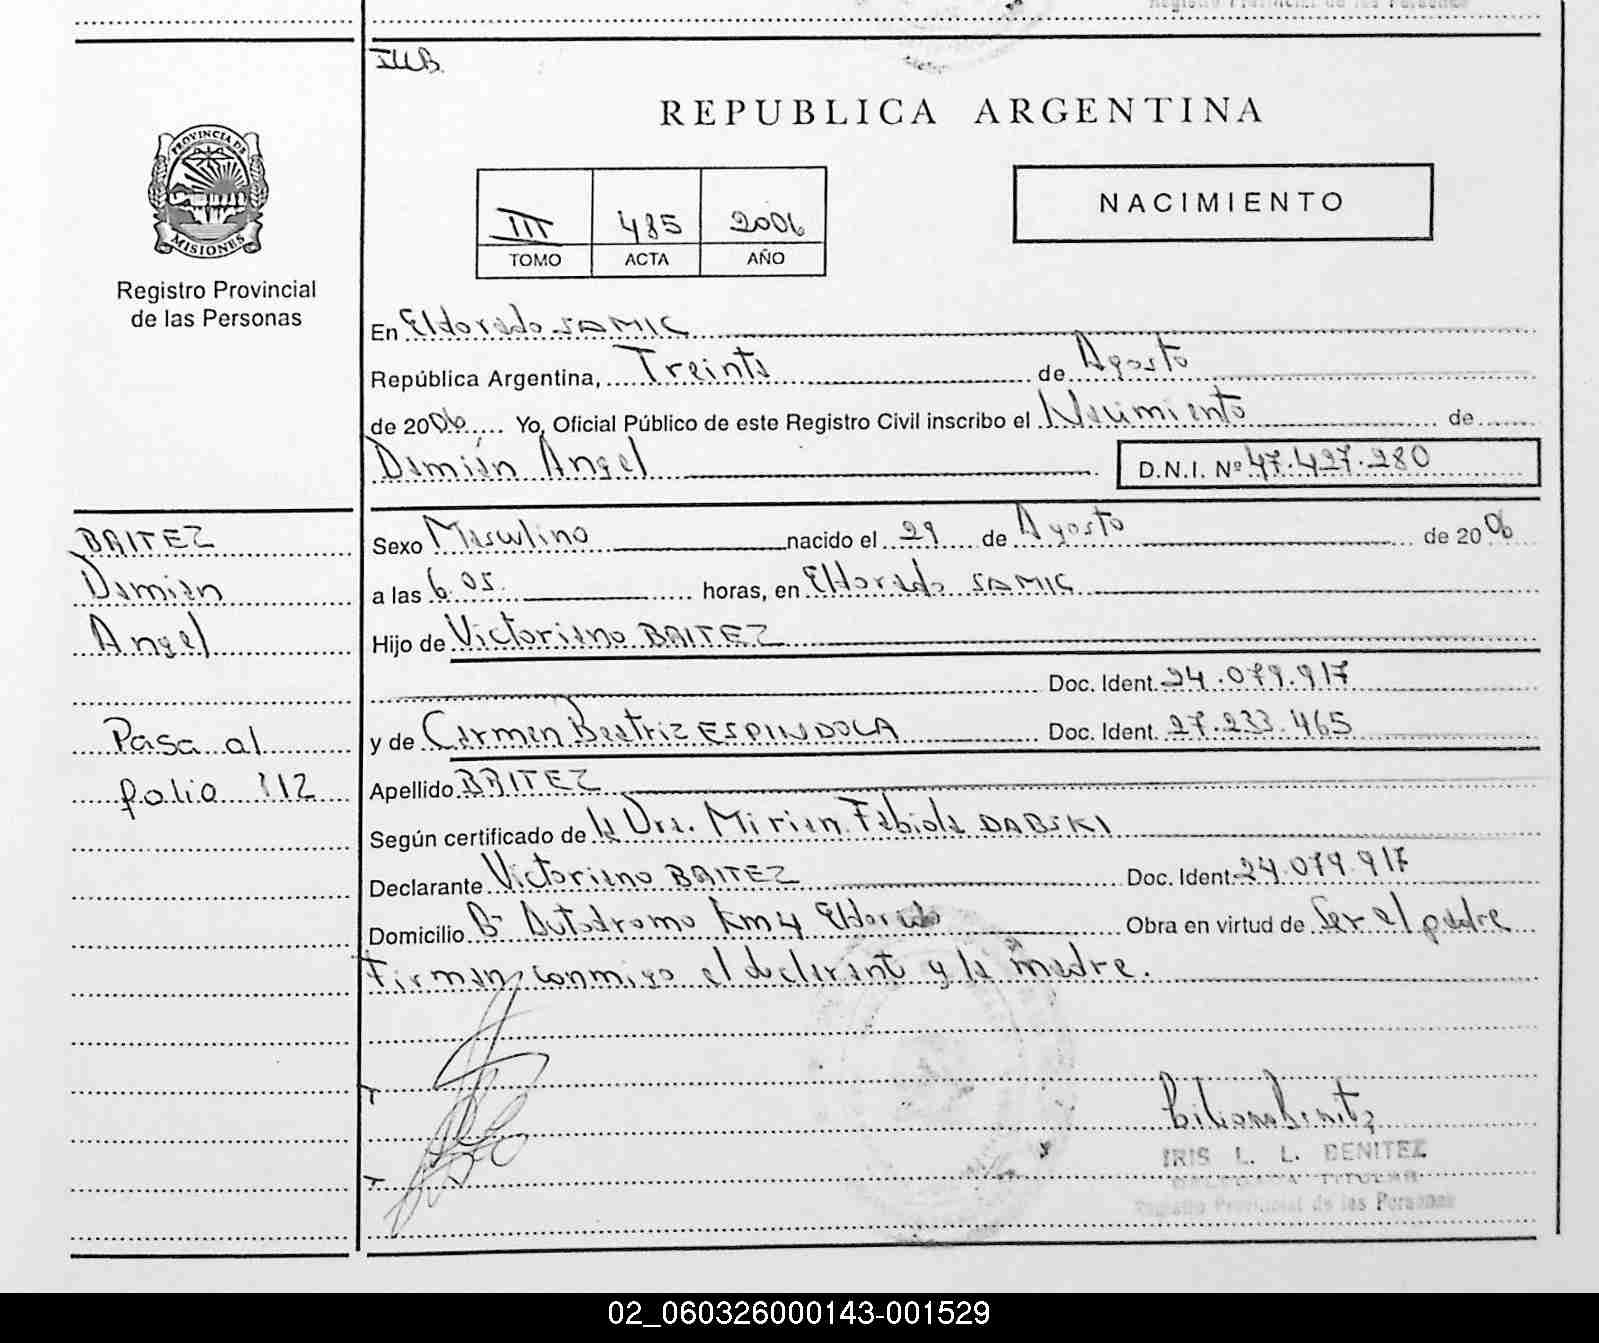 Registro Provincial de las Personas
I.U.B.
REPUBLICA ARGENTINA
PROVINCIA DE
MISIONES
Registro Provincial
de las Personas
III 485 2006
TOMO ACTA AÑO
NACIMIENTO
En Eldorado SAMIC
República Argentina, Treinta de Agosto
de 2006 Yo, Oficial Público de este Registro Civil inscribo el Nacimiento de
Damián Angel D.N.I. Nº 47.427.280
BAITEZ
Damián
Angel
Pasa al
folio 112
Sexo Masculino nacido el 29 de Agosto de 2006
a las 6.05. horas, en Eldorado SAMIC
Hijo de Victoriano BAITEZ
Doc. Ident. 24.079.917
y de Carmen Beatriz ESPINDOLA Doc. Ident. 27.233.465
Apellido BAITEZ
Según certificado de la Dra. Mirian Fabiola DABSKI
Declarante Victoriano BAITEZ Doc. Ident. 24.079.917
Domicilio Bº Autodromo Km 4 Eldorado Obra en virtud de Ser el padre
Firman conmigo el declarante y la madre.
Liliana Benitz
IRIS L. L. BENITEZ
DELEGADA TITULAR
Registro Provincial de las Personas
02_060326000143-001529